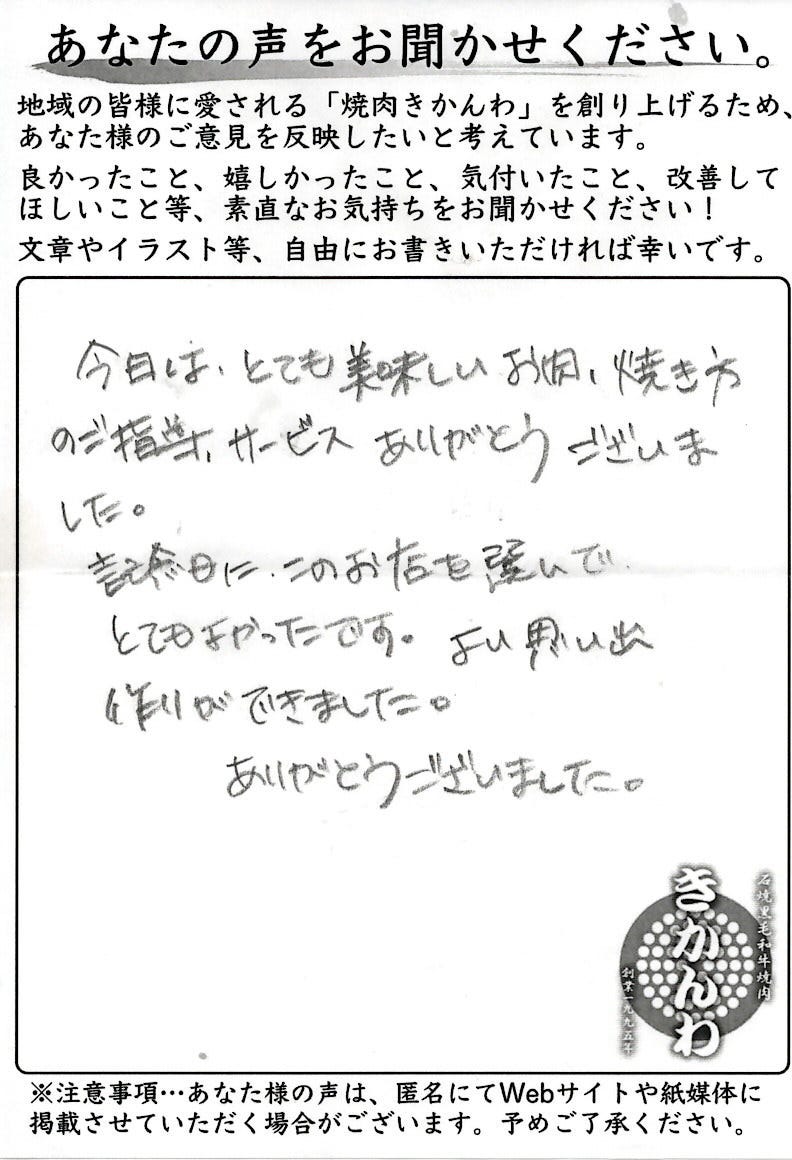 あなたの声をお聞かせください。
地域の皆様に愛される「焼肉きかんわ」を創り上げるため、
あなた様のご意見を反映したいと考えています。
良かったこと、嬉しかったこと、気付いたこと、改善して
ほしいこと等、素直なお気持ちをお聞かせください！
文章やイラスト等、自由にお書きいただければ幸いです。
今日は、とても美味しいお肉、焼き方
のご指導、サービス ありがとうございま
した。
記念日に、このお店を選んで
とてもよかったです。よい思い出
作りができました。
ありがとうございました。
石焼黒毛和牛焼肉
きかんわ
創業一九九五年
※注意事項…あなた様の声は、匿名にてWebサイトや紙媒体に
掲載させていただく場合がございます。予めご了承ください。